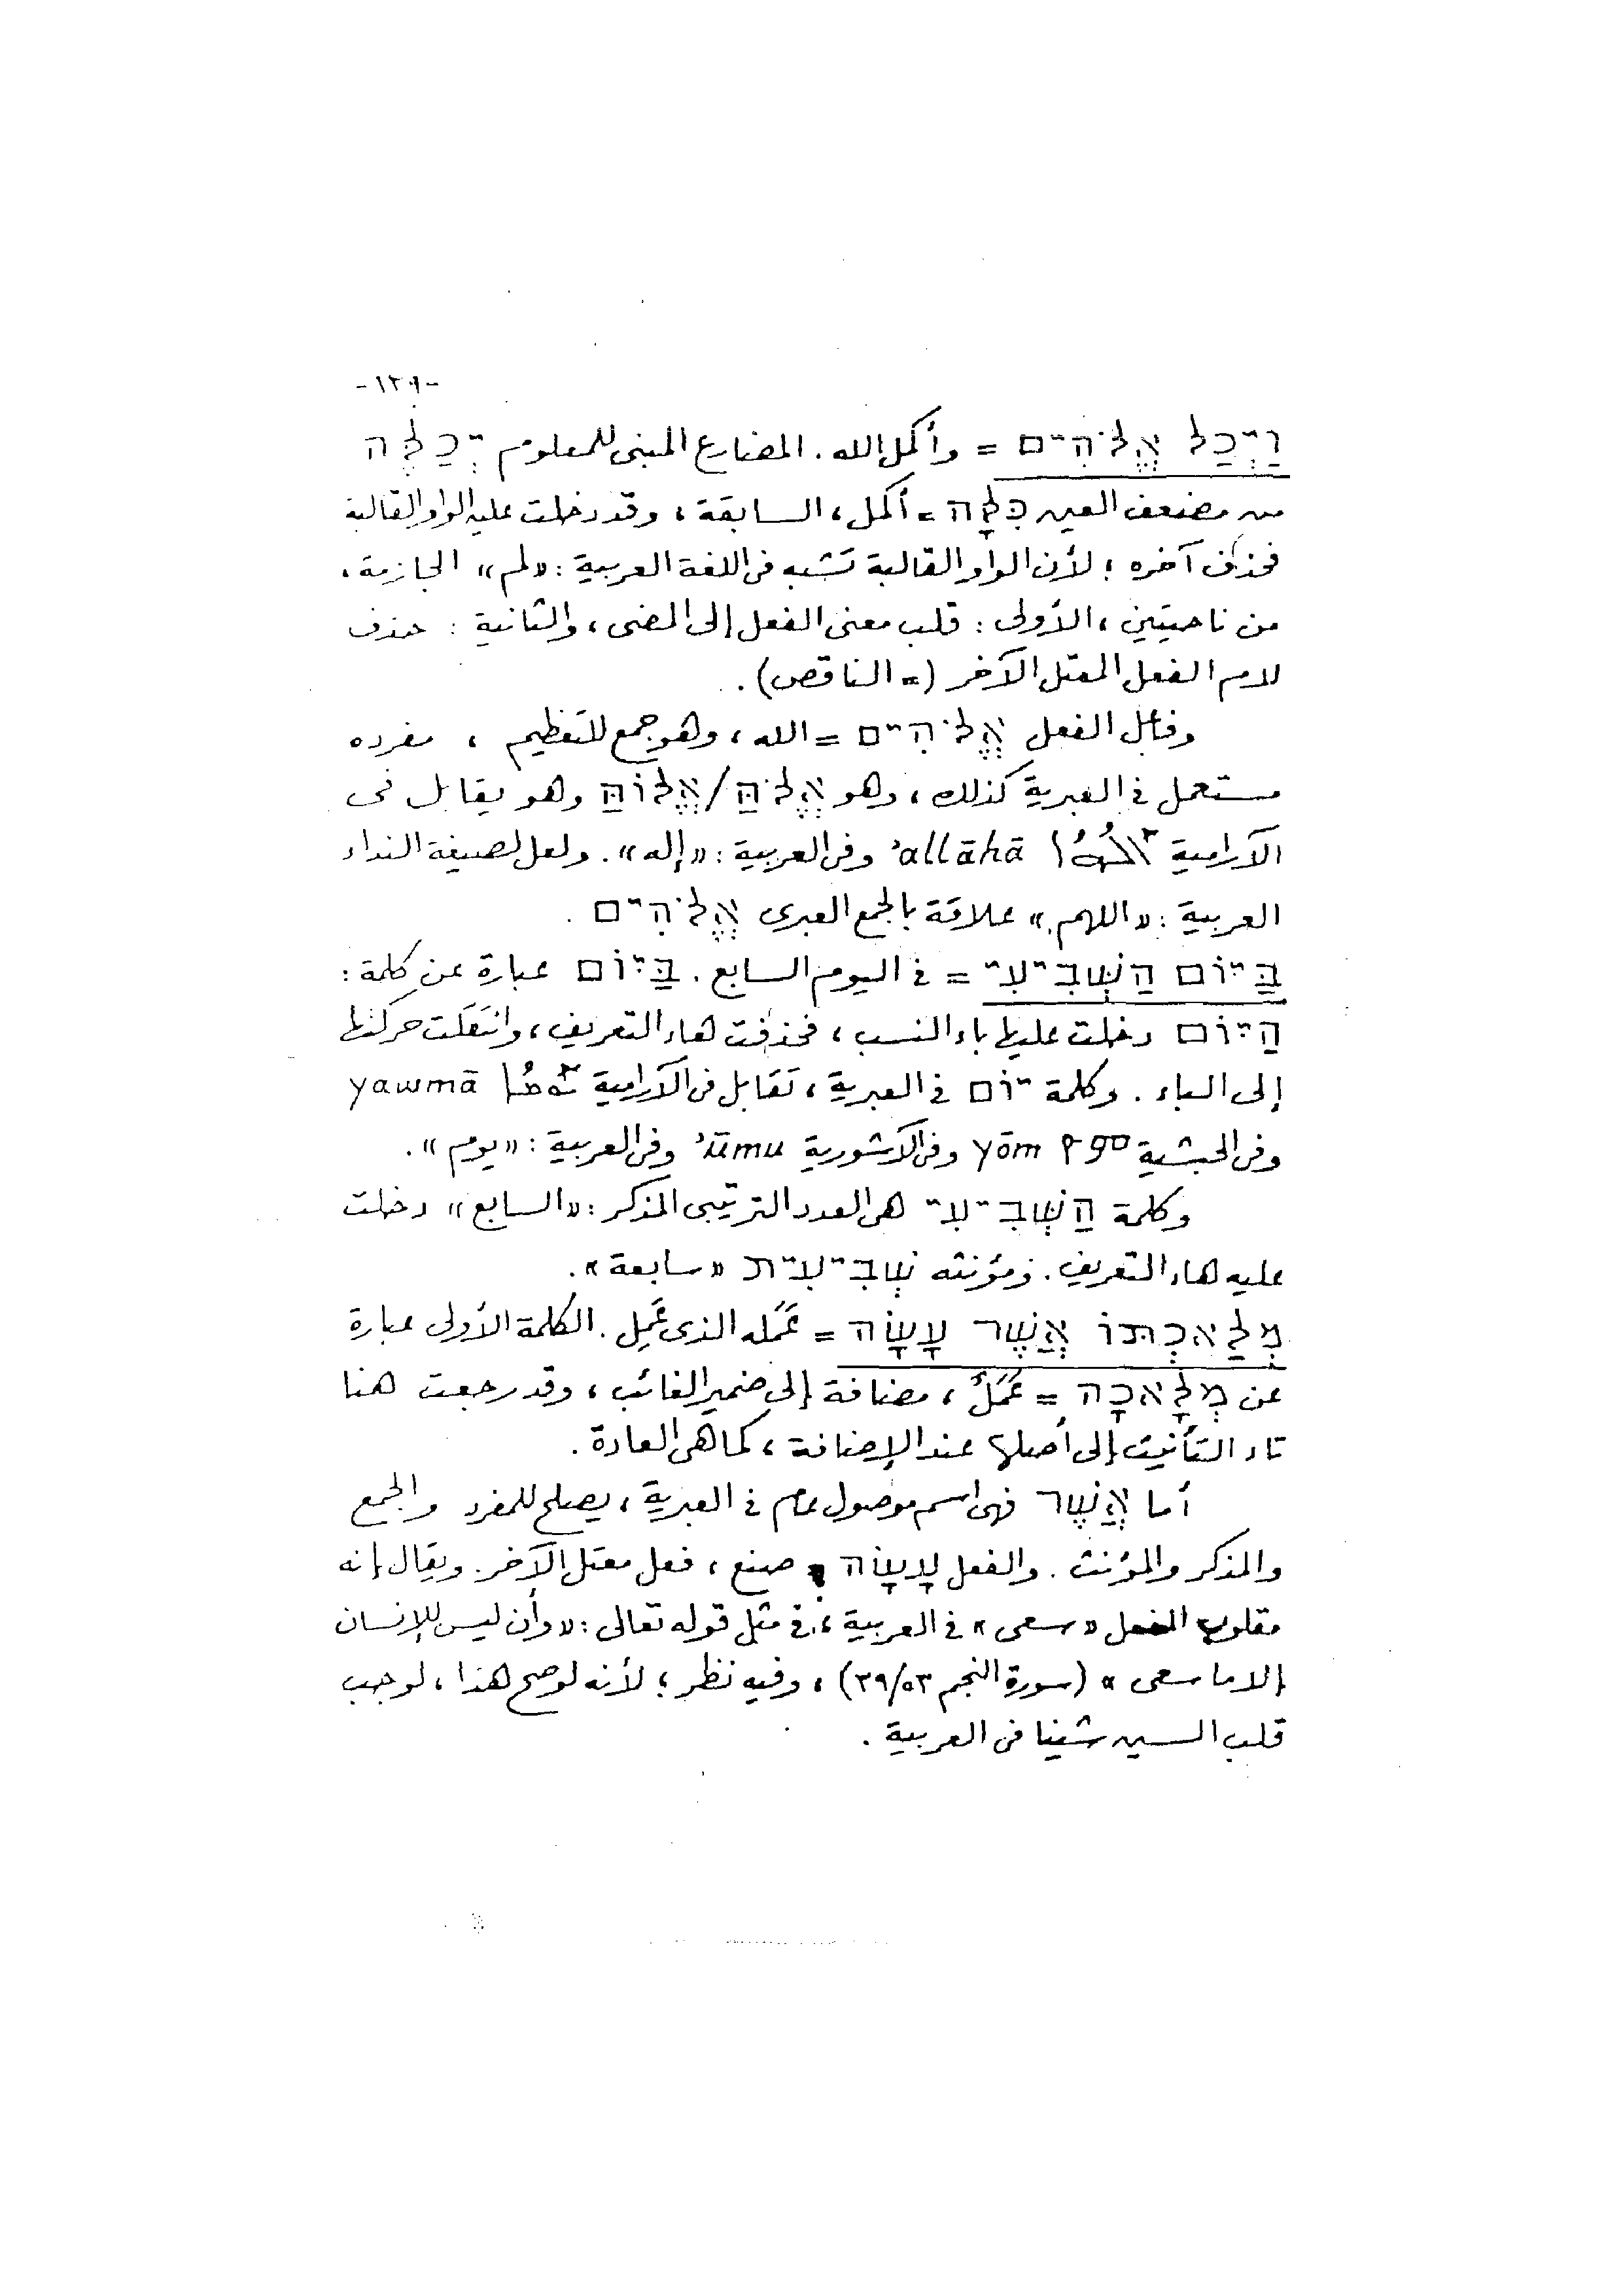 -١٢٩-
וַיְכַל אֱלֹהִים = وأكمل الله . المضارع المبنى للمعلوم יְכַלֶּה
من مضعف العين כִּלָּה = أكمل ، السابقة ، وقد دخلت عليه الواو القالبة
فحذف آخره ؛ لأن الواو القالبة تشبه فى اللغة العربية : « لم » الجازمة ،
من ناحيتين ، الأولى : قلب معنى الفعل إلى المضى ، والثانية : حذف
لام الفعل المعتل الآخر (= الناقص) .
وفاعل الفعل אֱלֹהִים = الله ، وهو جمع للتعظيم ، مفرده
مستعمل فى العبرية كذلك ، وهو אֱלֹהַּ/אֱלוֹהַּ وهو يقابل فى
الآرامية ܐܰܠܳܗܳܐ ʾallāhā وفى العربية : « إله » . ولعل لصيغة النداء
العربية : « اللهم » علاقة بالجمع العبرى אֱלֹהִים .
בַּיּוֹם הַשְּׁבִיעִי = فى اليوم السابع . בַּיּוֹם عبارة عن كلمة :
הַיּוֹם دخلت عليها باء النسب ، فحذفت هاء التعريف ، وانتقلت حركتها
إلى الباء . وكلمة יוֹם فى العبرية ، تقابل فى الآرامية ܝܰܘܡܳܐ yawmā
وفى الحبشية ዮም yōm وفى الآشورية ʾūmu وفى العربية : « يوم » .
وكلمة הַשְּׁבִיעִי هى العدد الترتيبى المذكر : « السابع » دخلت
عليه هاء التعريف . ومؤنثه שְׁבִיעִית « سابعة » .
מְלַאכְתּוֹ אֲשֶׁר עָשָׂה = عَمَله الذى عَمِل . الكلمة الأولى عبارة
عن מְלָאכָה = عَمَلٌ ، مضافة إلى ضمير الغائب ، وقد رجعت هنا
تاء التأنيث إلى أصلها عند الإضافة ، كما هى العادة .
أما אֲשֶׁר فهى اسم موصول عام فى العبرية ، يصلح للمفرد والجمع
والمذكر والمؤنث . والفعل עָשָׂה = صنع ، فعل معتل الآخر . ويقال إنه
مقلوب الفعل « سعى » فى العربية ، فى مثل قوله تعالى : « وأن ليس للإنسان
إلا ما سعى » (سورة النجم ٣٩/٥٣) ، وفيه نظر ؛ لأنه لو صح هذا ، لوجب
قلب السين شينا فى العربية .